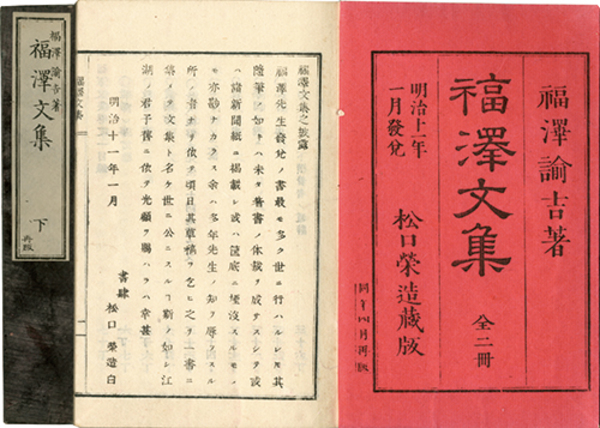 福澤諭吉著
福澤文集 全二冊
明治十一年
一月發兌
松口榮造藏版
同年四月再版
福澤文集之披露
福澤先生發兌ノ書最モ多ク世ニ行ハルレモ其
隨筆ノ如キハ未タ著書ノ体裁ヲ成サスシテ或
ハ諸新聞紙ニ掲載シ或ハ筐底ニ堙沒スルモノ
モ亦尠ナカラス余ハ多年先生ノ知ヲ辱フスル
所ノ者ナルヲ以テ頃日其草稿ヲ乞ヒ之ヲ一書ニ
集メテ文集ト名ケ世ニ公ニス 江
湖ノ君子舊ニ依テ光顧ヲ賜ハラハ幸甚
明治十一年一月
書肆 松口榮造白
福澤文集
一
福澤諭吉著
福澤文集 下
再版